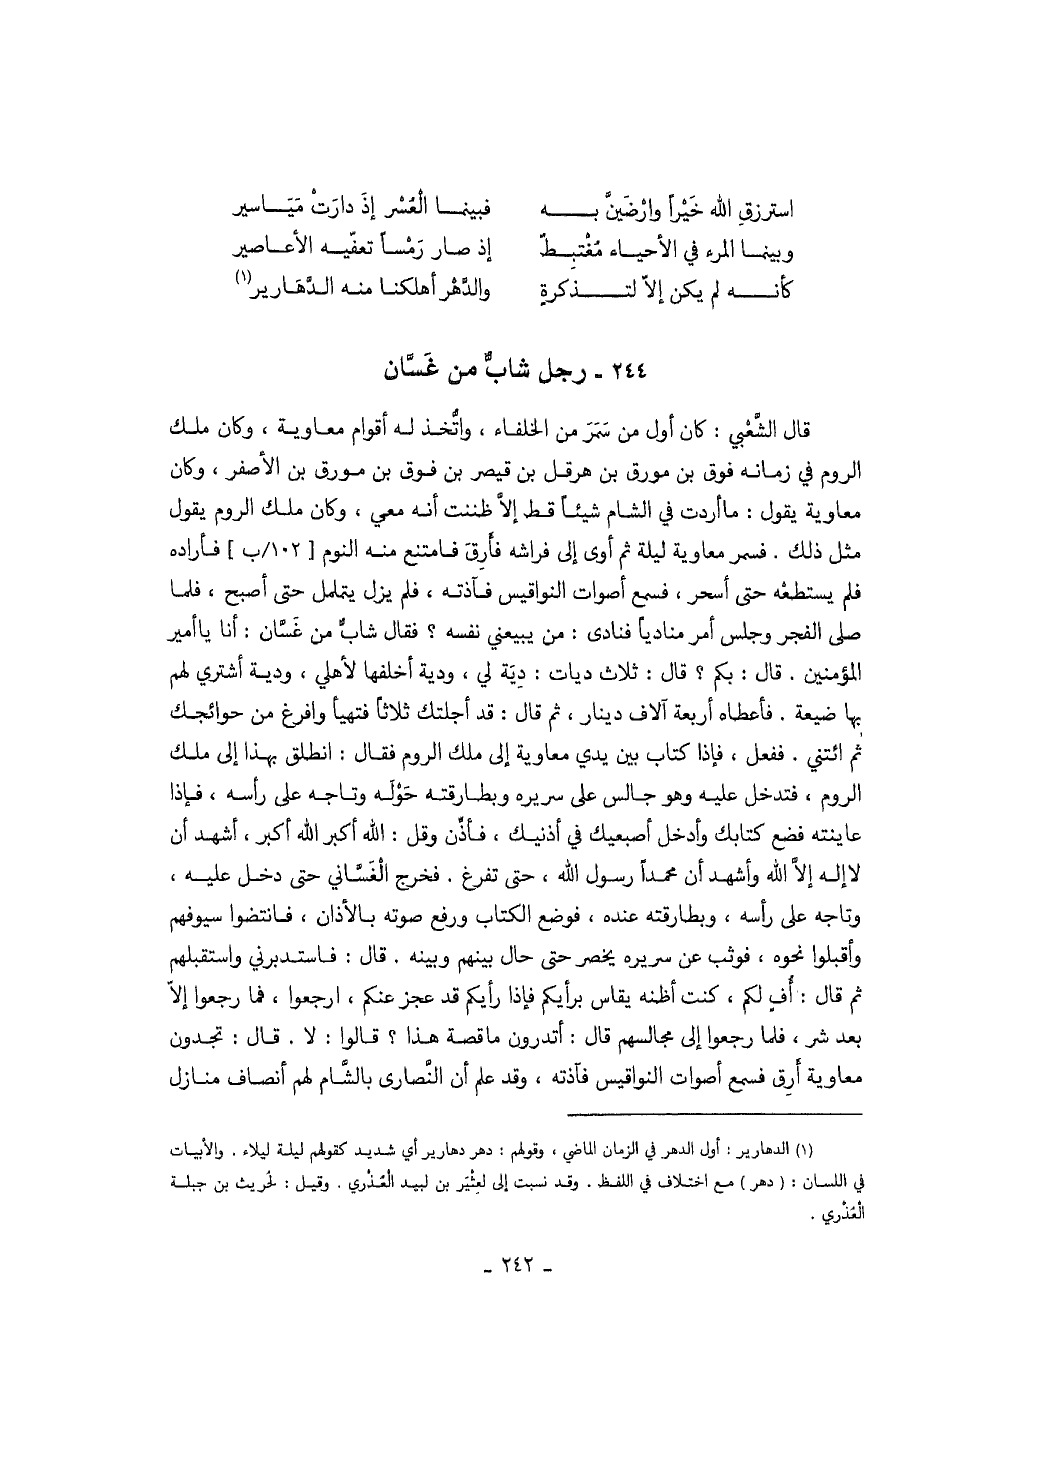 استرزقِ الله خَيْراً وارْضَينَّ بـــه فبينما الْعُسْر إذَ دارَتْ مَيَاسير
وبينما المرء في الأحياء مُغْتبِطٌ إذ صار رَمْساً تعفّيه الأعاصير
كأنه لم يكن إلاّ لتذكرةٍ والدَّهْر أهلكنا منه الدَّهَارير(١)
٢٤٤ - رجل شابٌّ من غَسَّان
قال الشَّعْبي : كان أول من سَمَرَ من الخلفاء ، واتُّخذ له أقوام معاوية ، وكان ملك
الروم في زمانه فوق بن مورق بن هرقل بن قيصر بن فوق بن مورق بن الأصفر ، وكان
معاوية يقول : ماأردت في الشام شيئاً قط إلاَّ ظننت أنه معي ، وكان ملك الروم يقول
مثل ذلك . فسمر معاوية ليلة ثم أوى إلى فراشه فأَرِقَ فامتنع منه النوم [ ١٠٢/ب ] فأراده
فلم يستطعْه حتى أسحر ، فسمع أصوات النواقيس فآذته ، فلم يزل يتململ حتى أصبح ، فلما
صلى الفجر وجلس أمر منادياً فنادى : من يبيعني نفسه ؟ فقال شابٌّ من غَسَّان : أنا ياأمير
المؤمنين . قال : بكم ؟ قال : ثلاث ديات : دِيَة لي ، ودية أخلفها لأهلي ، ودية أشتري لهم
بها ضيعة . فأعطاه أربعة آلاف دينار ، ثم قال : قد أجلتك ثلاثاً فتهيأ وافرغ من حوائجك
ثم ائتني . ففعل ، فإذا كتاب بين يدي معاوية إلى ملك الروم فقال : انطلق بهذا إلى ملك
الروم ، فتدخل عليه وهو جالس على سريره وبطارقته حَوْلَه وتاجه على رأسه ، فإذا
عاينته فضع كتابك وأدخل أصبعيك في أذنيك ، فأذّن وقل : الله أكبر الله أكبر ، أشهد أن
لاإله إلاَّ الله وأشهد أن محمداً رسول الله ، حتى تفرغ . فخرج الْغَسَّاني حتى دخل عليه ،
وتاجه على رأسه ، وبطارقته عنده ، فوضع الكتاب ورفع صوته بالأذان ، فانتضوا سيوفهم
وأقبلوا نحوه ، فوثب عن سريره يخصر حتى حال بينهم وبينه . قال : فاستدبرني واستقبلهم
ثم قال : أُفٍ لكم ، كنت أظنه يقاس برأيكم فإذا رأيكم قد عجز عنكم ، ارجعوا ، فما رجعوا إلاّ
بعد شر ، فلما رجعوا إلى مجالسهم قال : أتدرون ماقصة هذا ؟ قالوا : لا . قال : تجدون
معاوية أَرِق فسمع أصوات النواقيس فآذته ، وقد علم أن النَّصارى بالشَّام لهم أنصاف منازل
(١) الدهارير : أول الدهر في الزمان الماضي ، وقولهم : دهر دهارير أي شديد كقولهم ليلة ليلاء . والأبيات
في اللسان : ( دهر ) مع اختلاف في اللفظ . وقد نسبت إلى لعِثْيَر بن لبيد الْعُذْري . وقيل : لحُريث بن جبلة
الْعُذْري .
- ٢٤٢ -